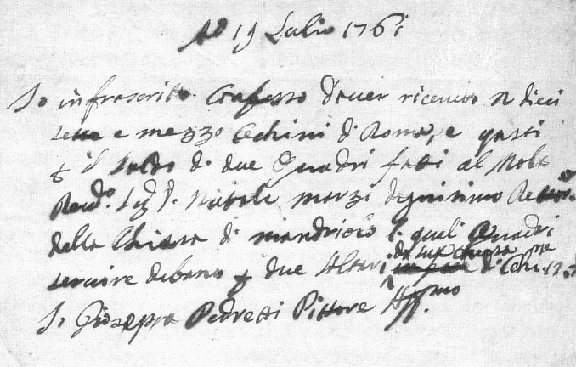 Ad 19 Luglio 1761
Io infrascrito Confesso d'aver riceuuto n dieci
sette e mezzo Cechini di Roma, e questi
p il Saldo di due Quadri fati al Molt
Rend.o Sig.r D. Natale marzi degnisimo Rettore
della Chiesa di mandriolo i quali Quadri
seruire debano p due Altari di Chi
da sua chiesa
Io Giuseppe Pedretti Pittore Affmo